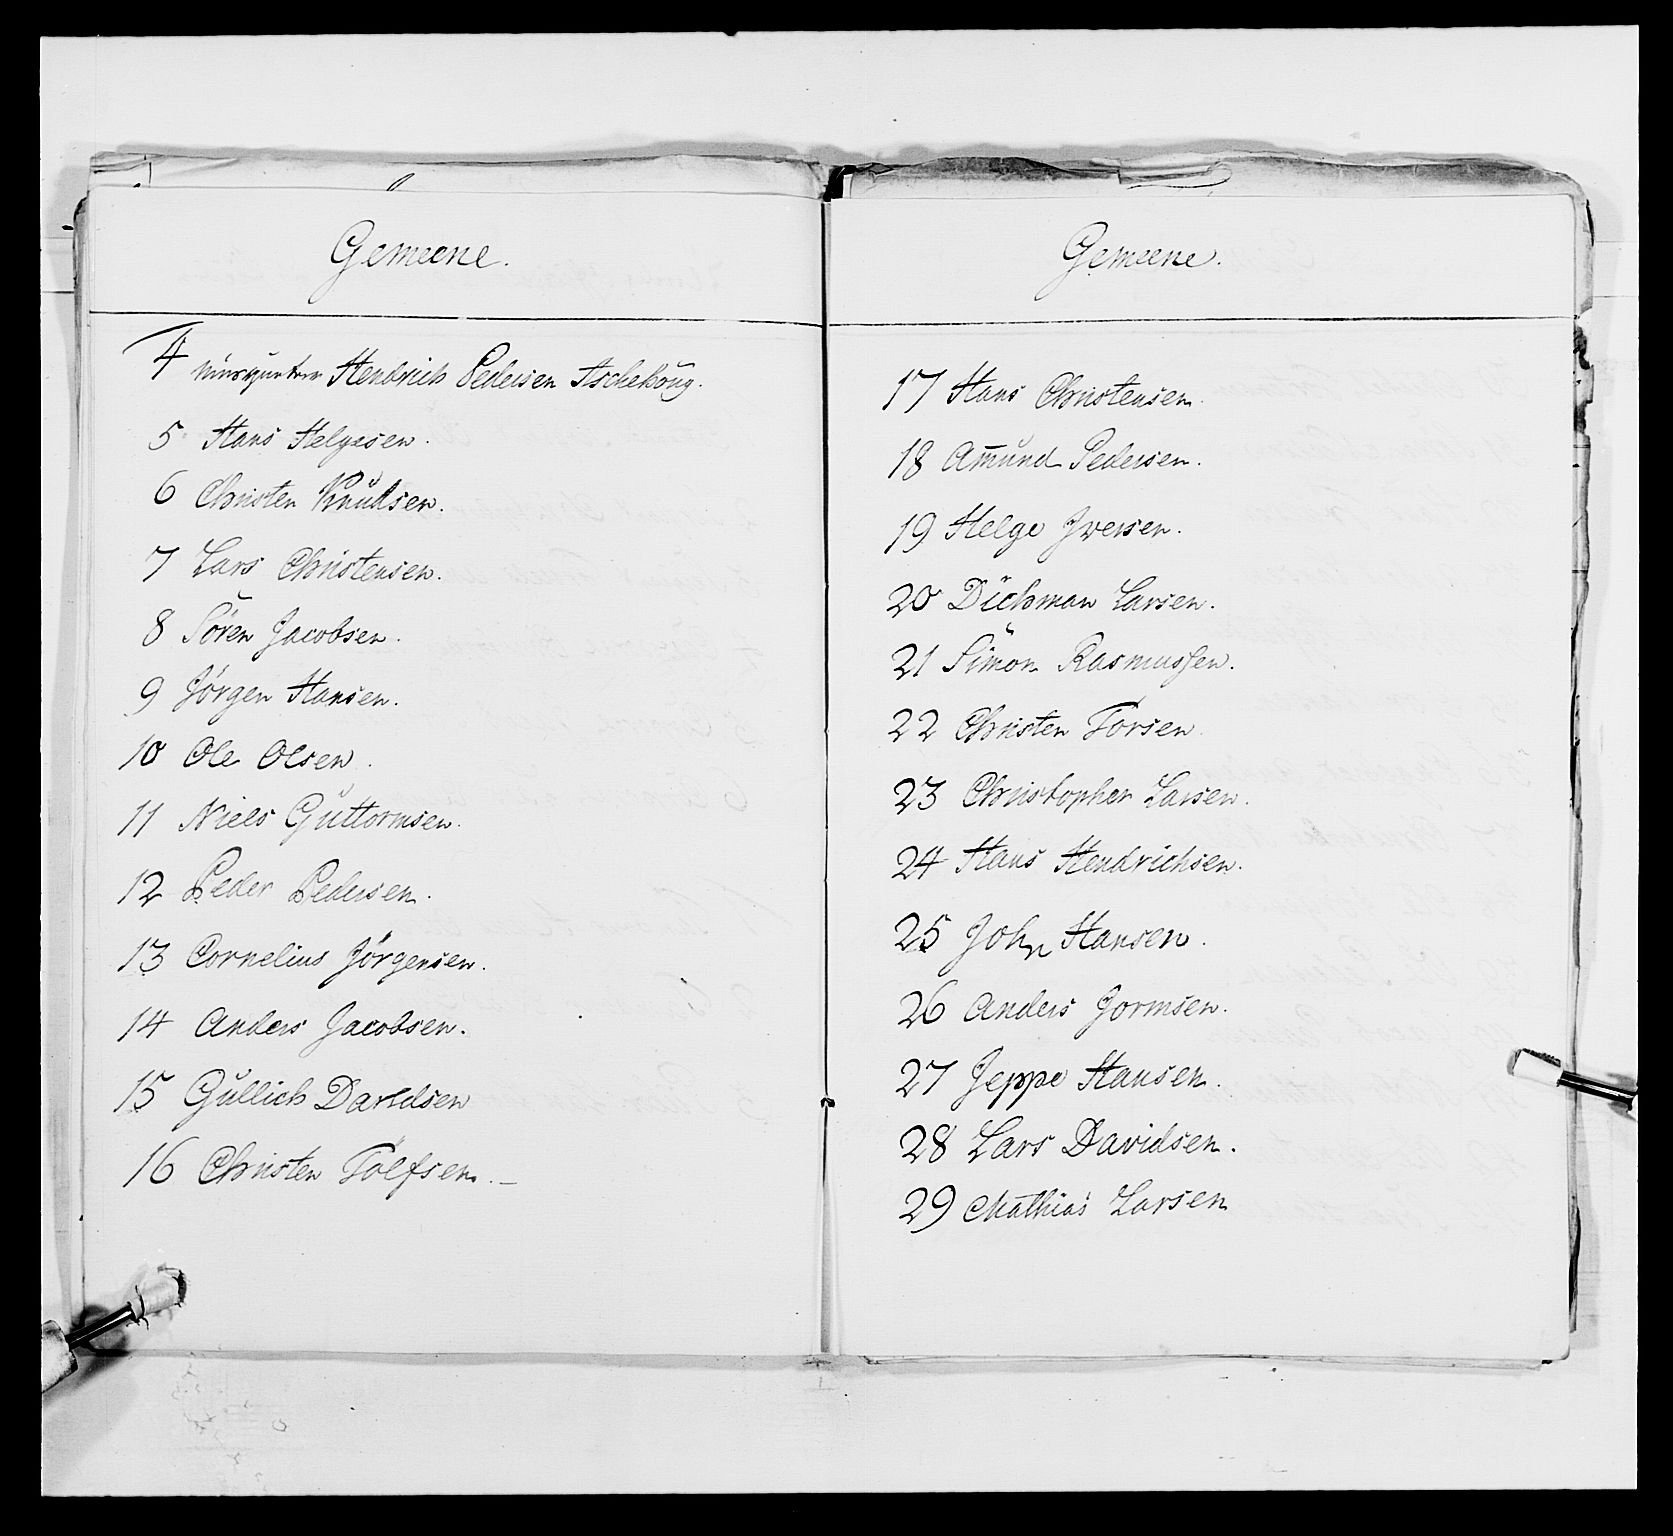 Gemeene.
4 Hendrich Pedersen Aschehoug.
5 Hans Helgesen.
6 Christen Knudsen.
7 Lars Christensen.
8 Sören Jacobsen.
9 Jörgen Hansen.
10 Ole Olsen.
11 Niels Guttormsen.
12 Peder Pedersen.
13 Cornelius Jörgensen.
14 Anders Jacobsen.
15 Gullich Davidsen
16 Christen Tolfsen.
Gemeene.
17 Hans Christensen.
18 Amund Pedersen.
19 Helge Iversen.
20 Dichman Larsen.
21 Simon Rasmussen.
22 Christen Torsen
23 Christopher Larsen.
24 Hans Hendrichsen.
25 John Hansen.
26 Anders Gormsen.
27 Jeppe Hansen.
28 Lars Davidsen.
29 Mathias Larsen